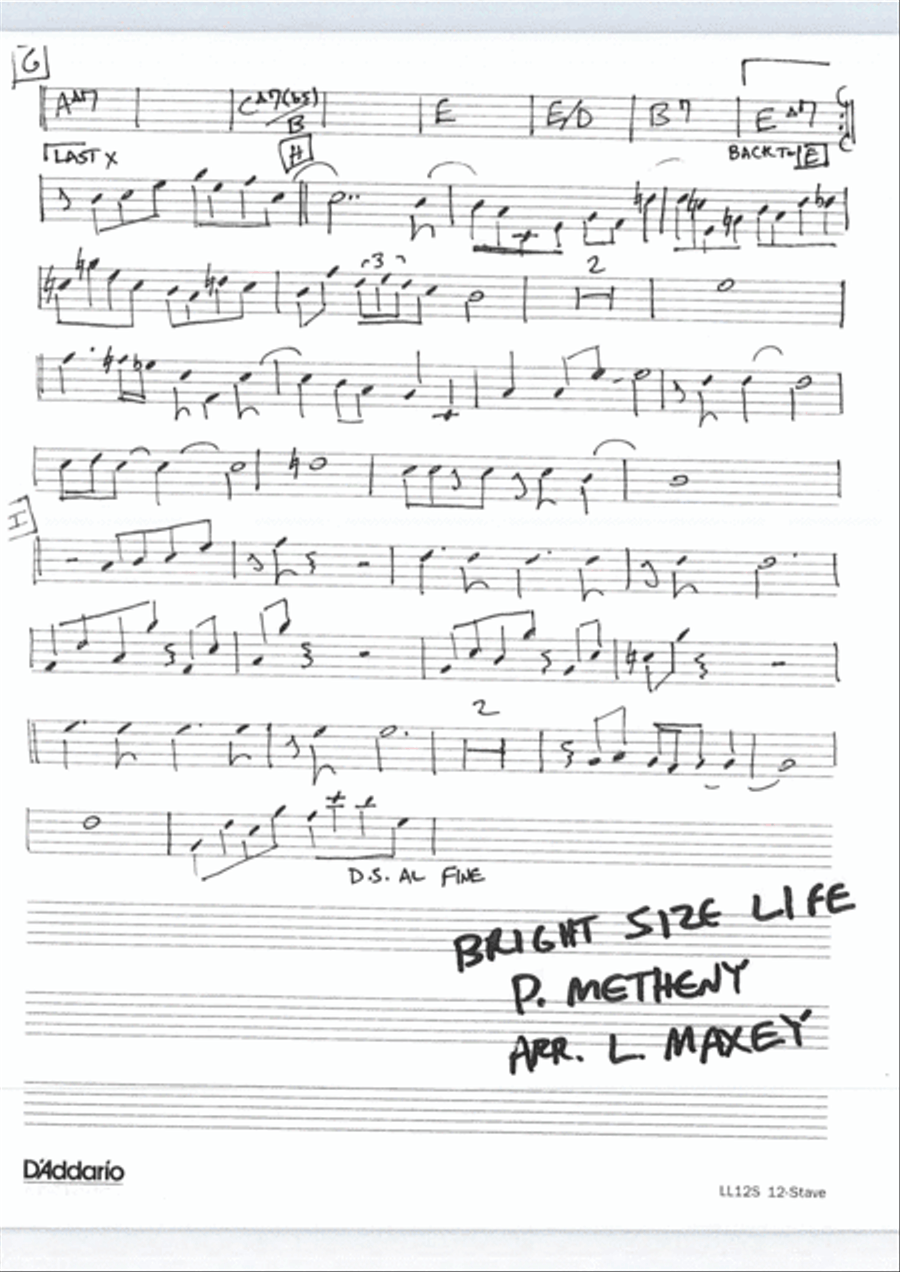 G
A△7 C△7(b5)/B E E/D B7 E△7
LAST X H BACK TO E
3 2
I
2
D.S. AL FINE
BRIGHT SIZE LIFE
P. METHENY
ARR. L. MAXEY
D'Addario
LL12S 12-Stave